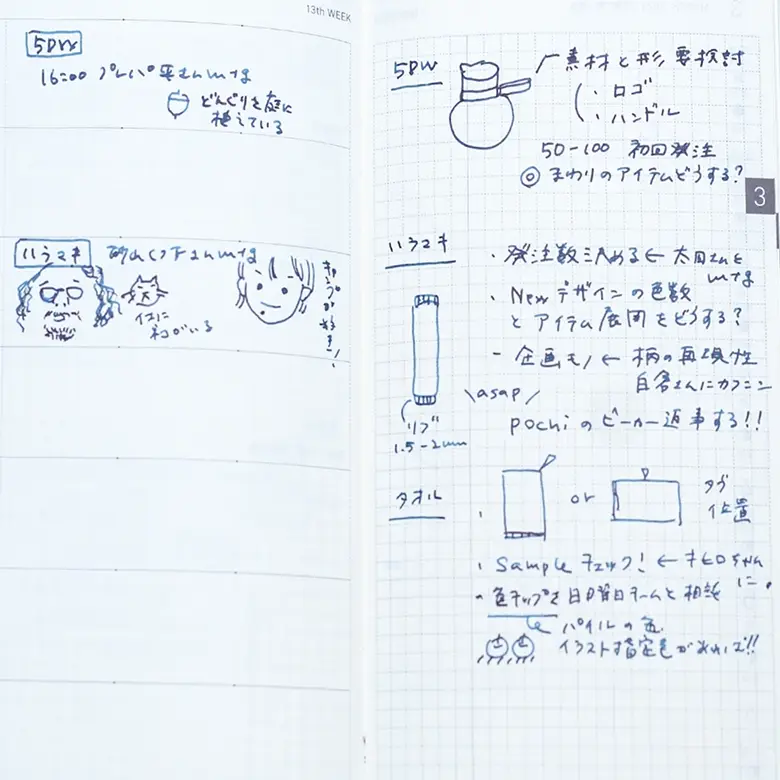 13th WEEK
5DW
16:00 プレパ 平さん mtg
どんぐりを庭に
植えている
ハラマキ
さん mtg
イエに
ネコがいる
5DW
素材と形 要検討
・ロゴ
・ハンドル
50-100 初回発注
◎ まわりのアイテムどうする?
3
ハラマキ
・発注数 決める ← 太田さんと
mtg
・Newデザインの色数
とアイテム展開をどうする?
- 企画モノ ← 柄の再現性
さんにカクニン
\asap/
pochiのビーカー返事する!!
リブ
1.5-2mm
タオル
or
タブ
位置
・Sampleチェック! ←
に。
・色チップを日曜日チームと相談
パイルの色
イラスト指定色があれば!!